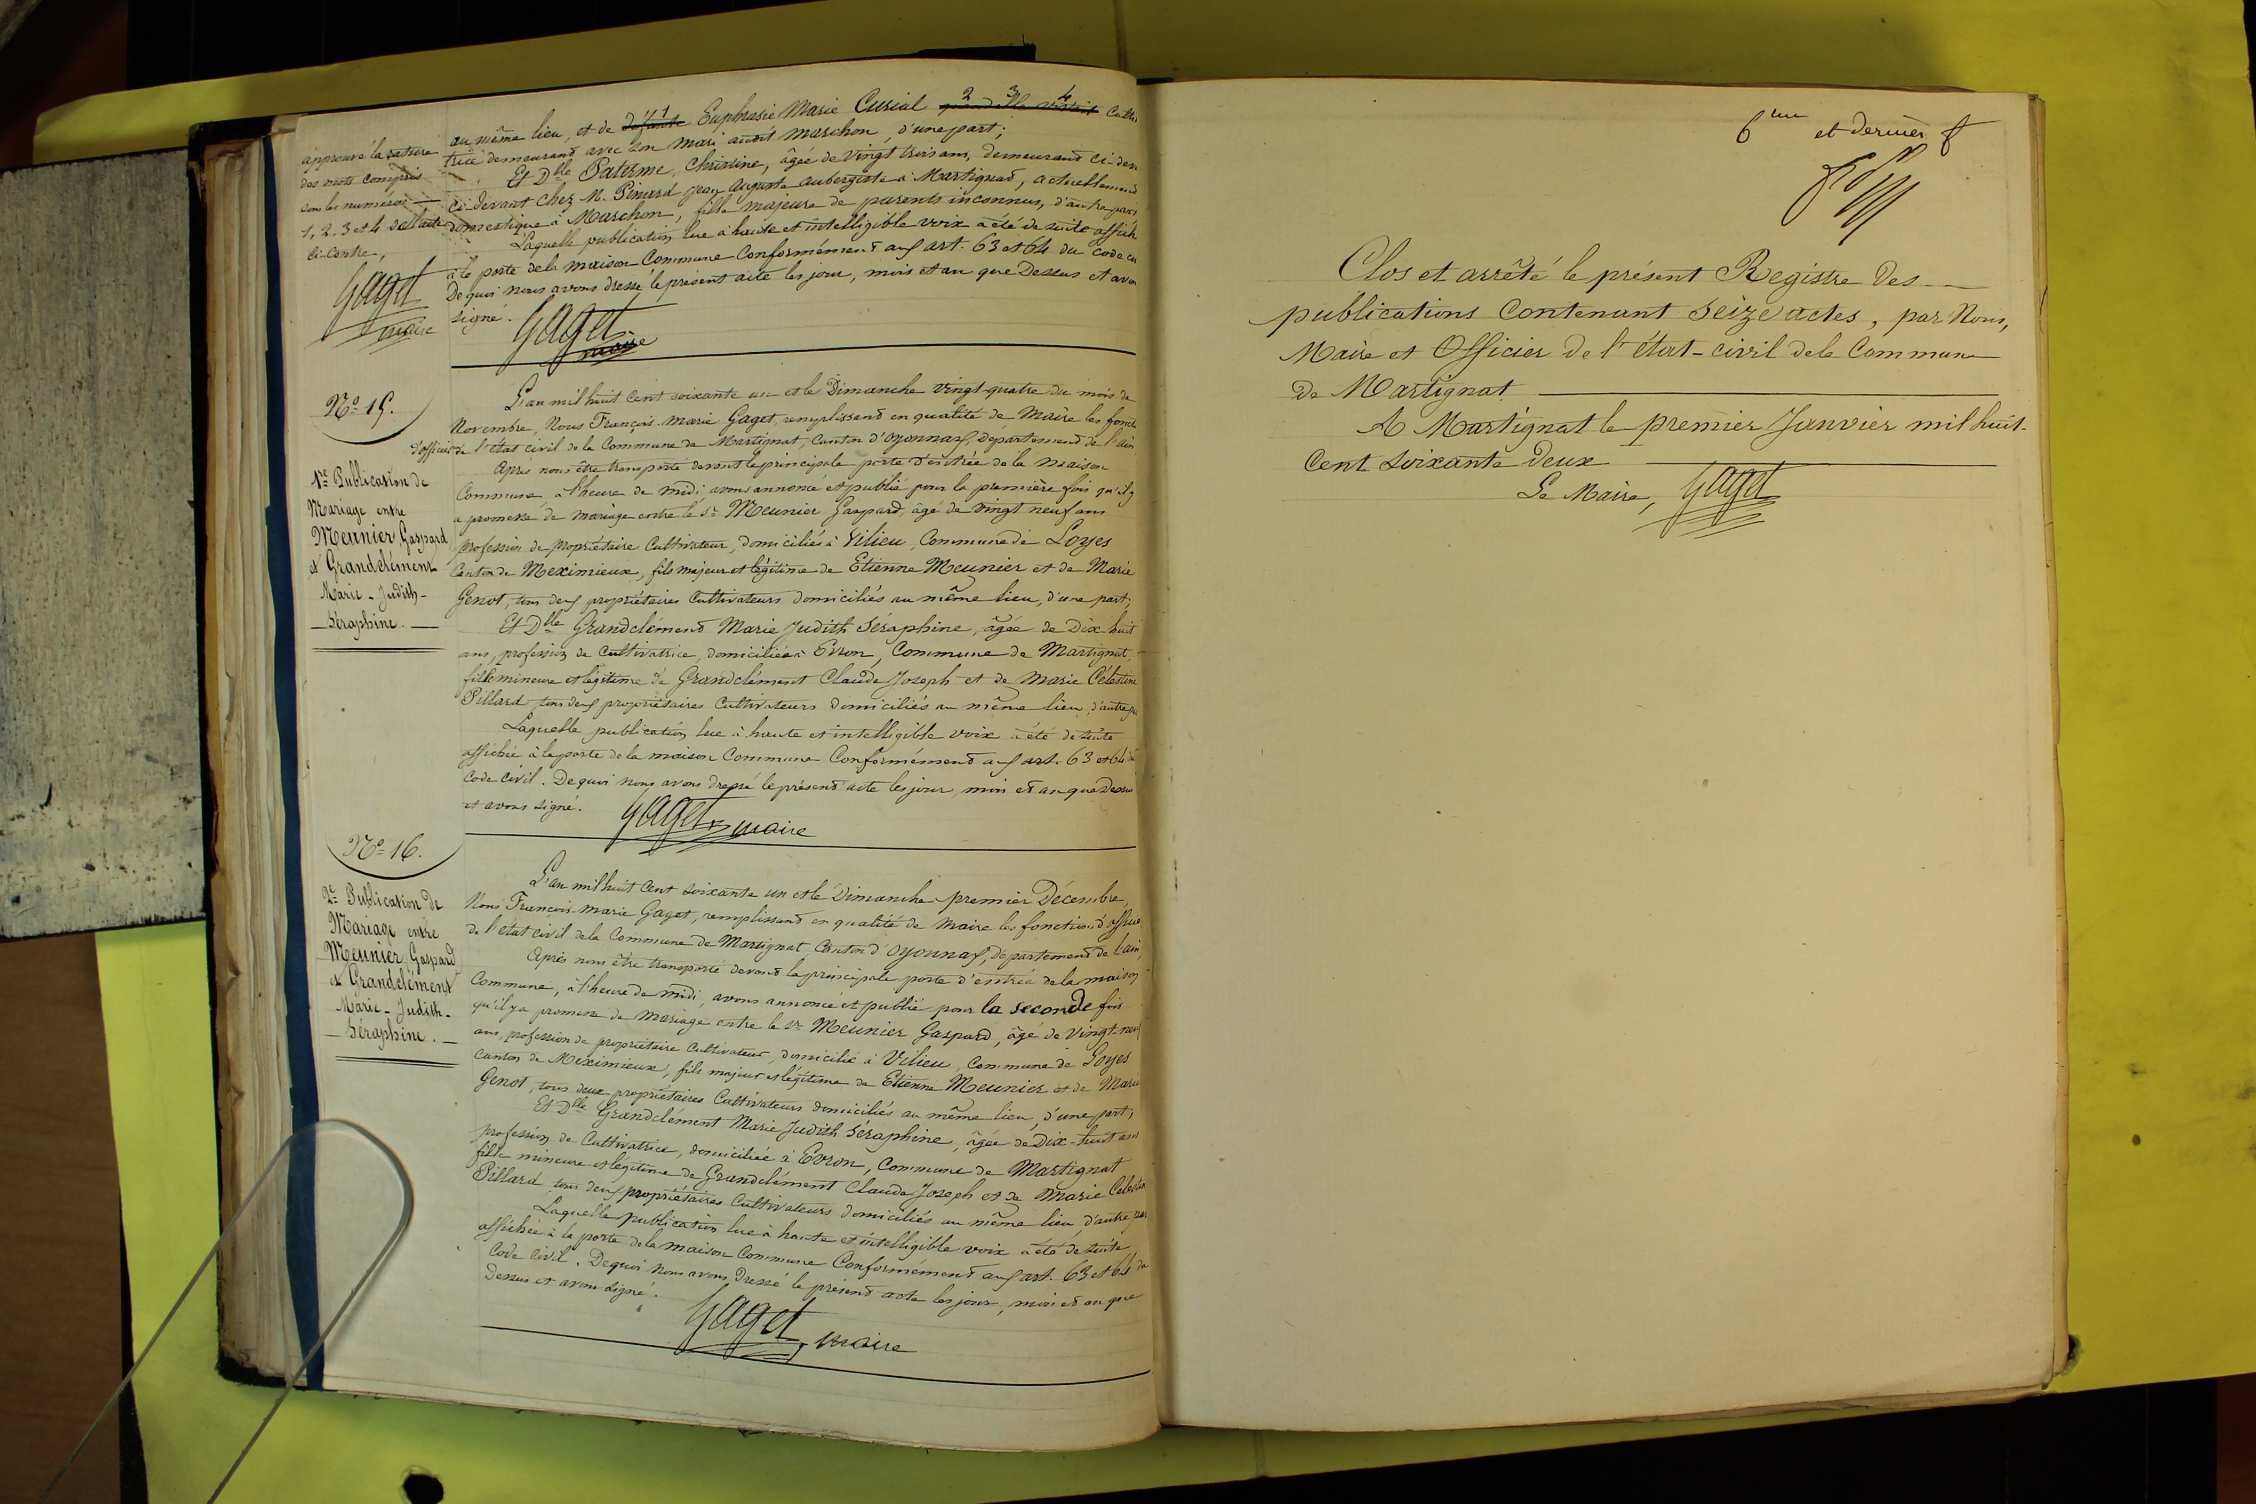 au même lieu, et de défunte Euphrasie Marie Curial
trice demeurant avec son mari audit Marchon, d'une part;
Et Dlle Paterme Christine, âgée de vingt trois ans, demeurant ci-
ci-devant chez M. Pinard Jean Auguste aubergiste à Martignat, actuellement
domestique à Marchon, fille majeure de parents inconnus, d'autre part
Laquelle publication lue à haute et intelligible voix a été de suite affich
à la porte de la maison Commune Conformément aux art. 63 et 64 du code
De quoi nous avons dressé le présent acte les jour, mois et an que Dessus et avon
signé.
Gaget
maire
approuvé la rature
des mots compris
sous les numéros
1, 2, 3 et 4 de l'acte
ci-contre,
Gaget
maire
No 15.
1re Publication de
Mariage entre
Meunier Gaspard
et Grandclément
Marie-Judith-
Séraphine.
L'an mil huit Cent soixante un et le Dimanche vingt-quatre du mois de
Novembre, Nous François-Marie Gaget, remplissant en qualité de Maire les foncti
d'officier de l'état civil de la Commune de Martignat, Canton d'Oyonnax, département de l'ain
Après nous être transporté devant la principale porte d'entrée de la Maison
Commune, à l'heure de midi, avons annoncé et publié pour la première fois qu'il y
a promesse de mariage entre le Sr Meunier Gaspard, âgé de vingt neuf ans
profession de propriétaire Cultivateur, domiciliés à Vilieu, Commune de Loyes
Canton de Meximieux, fils majeur et légitime de Etienne Meunier et de Marie
Genot, tous deux propriétaires Cultivateurs domiciliés au même lieu, d'une part;
Et Dlle Grandclément Marie Judith Séraphine, âgée de Dix huit
ans, profession de Cultivatrice, domiciliée à Evron, Commune de Martignat,
fille mineure et légitime de Grandclément Claude Joseph et de Marie Célestine
Pillard tous deux propriétaires Cultivateurs domiciliés au même lieu, d'autre pa
Laquelle publication lue à haute et intelligible voix a été de suite
affichée à la porte de la maison Commune Conformément aux art. 63 et 64 du
Code Civil. De quoi nous avons dressé le présent acte les jour, mois et an que Dessus
et avons signé.
Gaget, maire
No 16.
2e Publication de
Mariage entre
Meunier Gaspard
et Grandclément
Marie-Judith-
Séraphine.
L'an mil huit Cent soixante un et le Dimanche premier Décembre,
Nous François-Marie Gaget, remplissant en qualité de Maire les fonctions d'officie
de l'état civil de la Commune de Martignat, Canton d'Oyonnax, département de l'ain,
Après nous être transporté devant la principale porte d'entrée de la maison
Commune, à l'heure de midi, avons annoncé et publié pour la seconde fois
qu'il y a promesse de Mariage entre le Sr Meunier Gaspard, âgé de vingt-neuf
ans, profession de propriétaire Cultivateur, domicilié à Vilieu, Commune de Loyes
Canton de Meximieux, fils majeur et légitime de Etienne Meunier et de Marie
Genot, tous deux propriétaires Cultivateurs domiciliés au même lieu, d'une part;
Et Dlle Grandclément Marie Judith Séraphine, âgée de Dix-huit ans
profession de Cultivatrice, domiciliée à Evron, Commune de Martignat
fille mineure et légitime de Grandclément Claude Joseph et de Marie Celestin
Pillard, tous deux propriétaires Cultivateurs domiciliés au même lieu, d'autre par
Laquelle publication lue à haute et intelligible voix a été de suite
affichée à la porte de la maison Commune Conformément aux art. 63 et 64 du
Code Civil. De quoi Nous avons Dressé le présent acte les jour, mois et an que
Dessus et avons signé.
Gaget, maire
6me et dernier f
Clos et arrêté le présent Registre des
publications Contenant Seize actes, par Nous,
Maire et Officier de l'état-civil de la Commune
de Martignat
A Martignat le premier Janvier mil huit-
Cent soixante Deux
Le Maire, Gaget